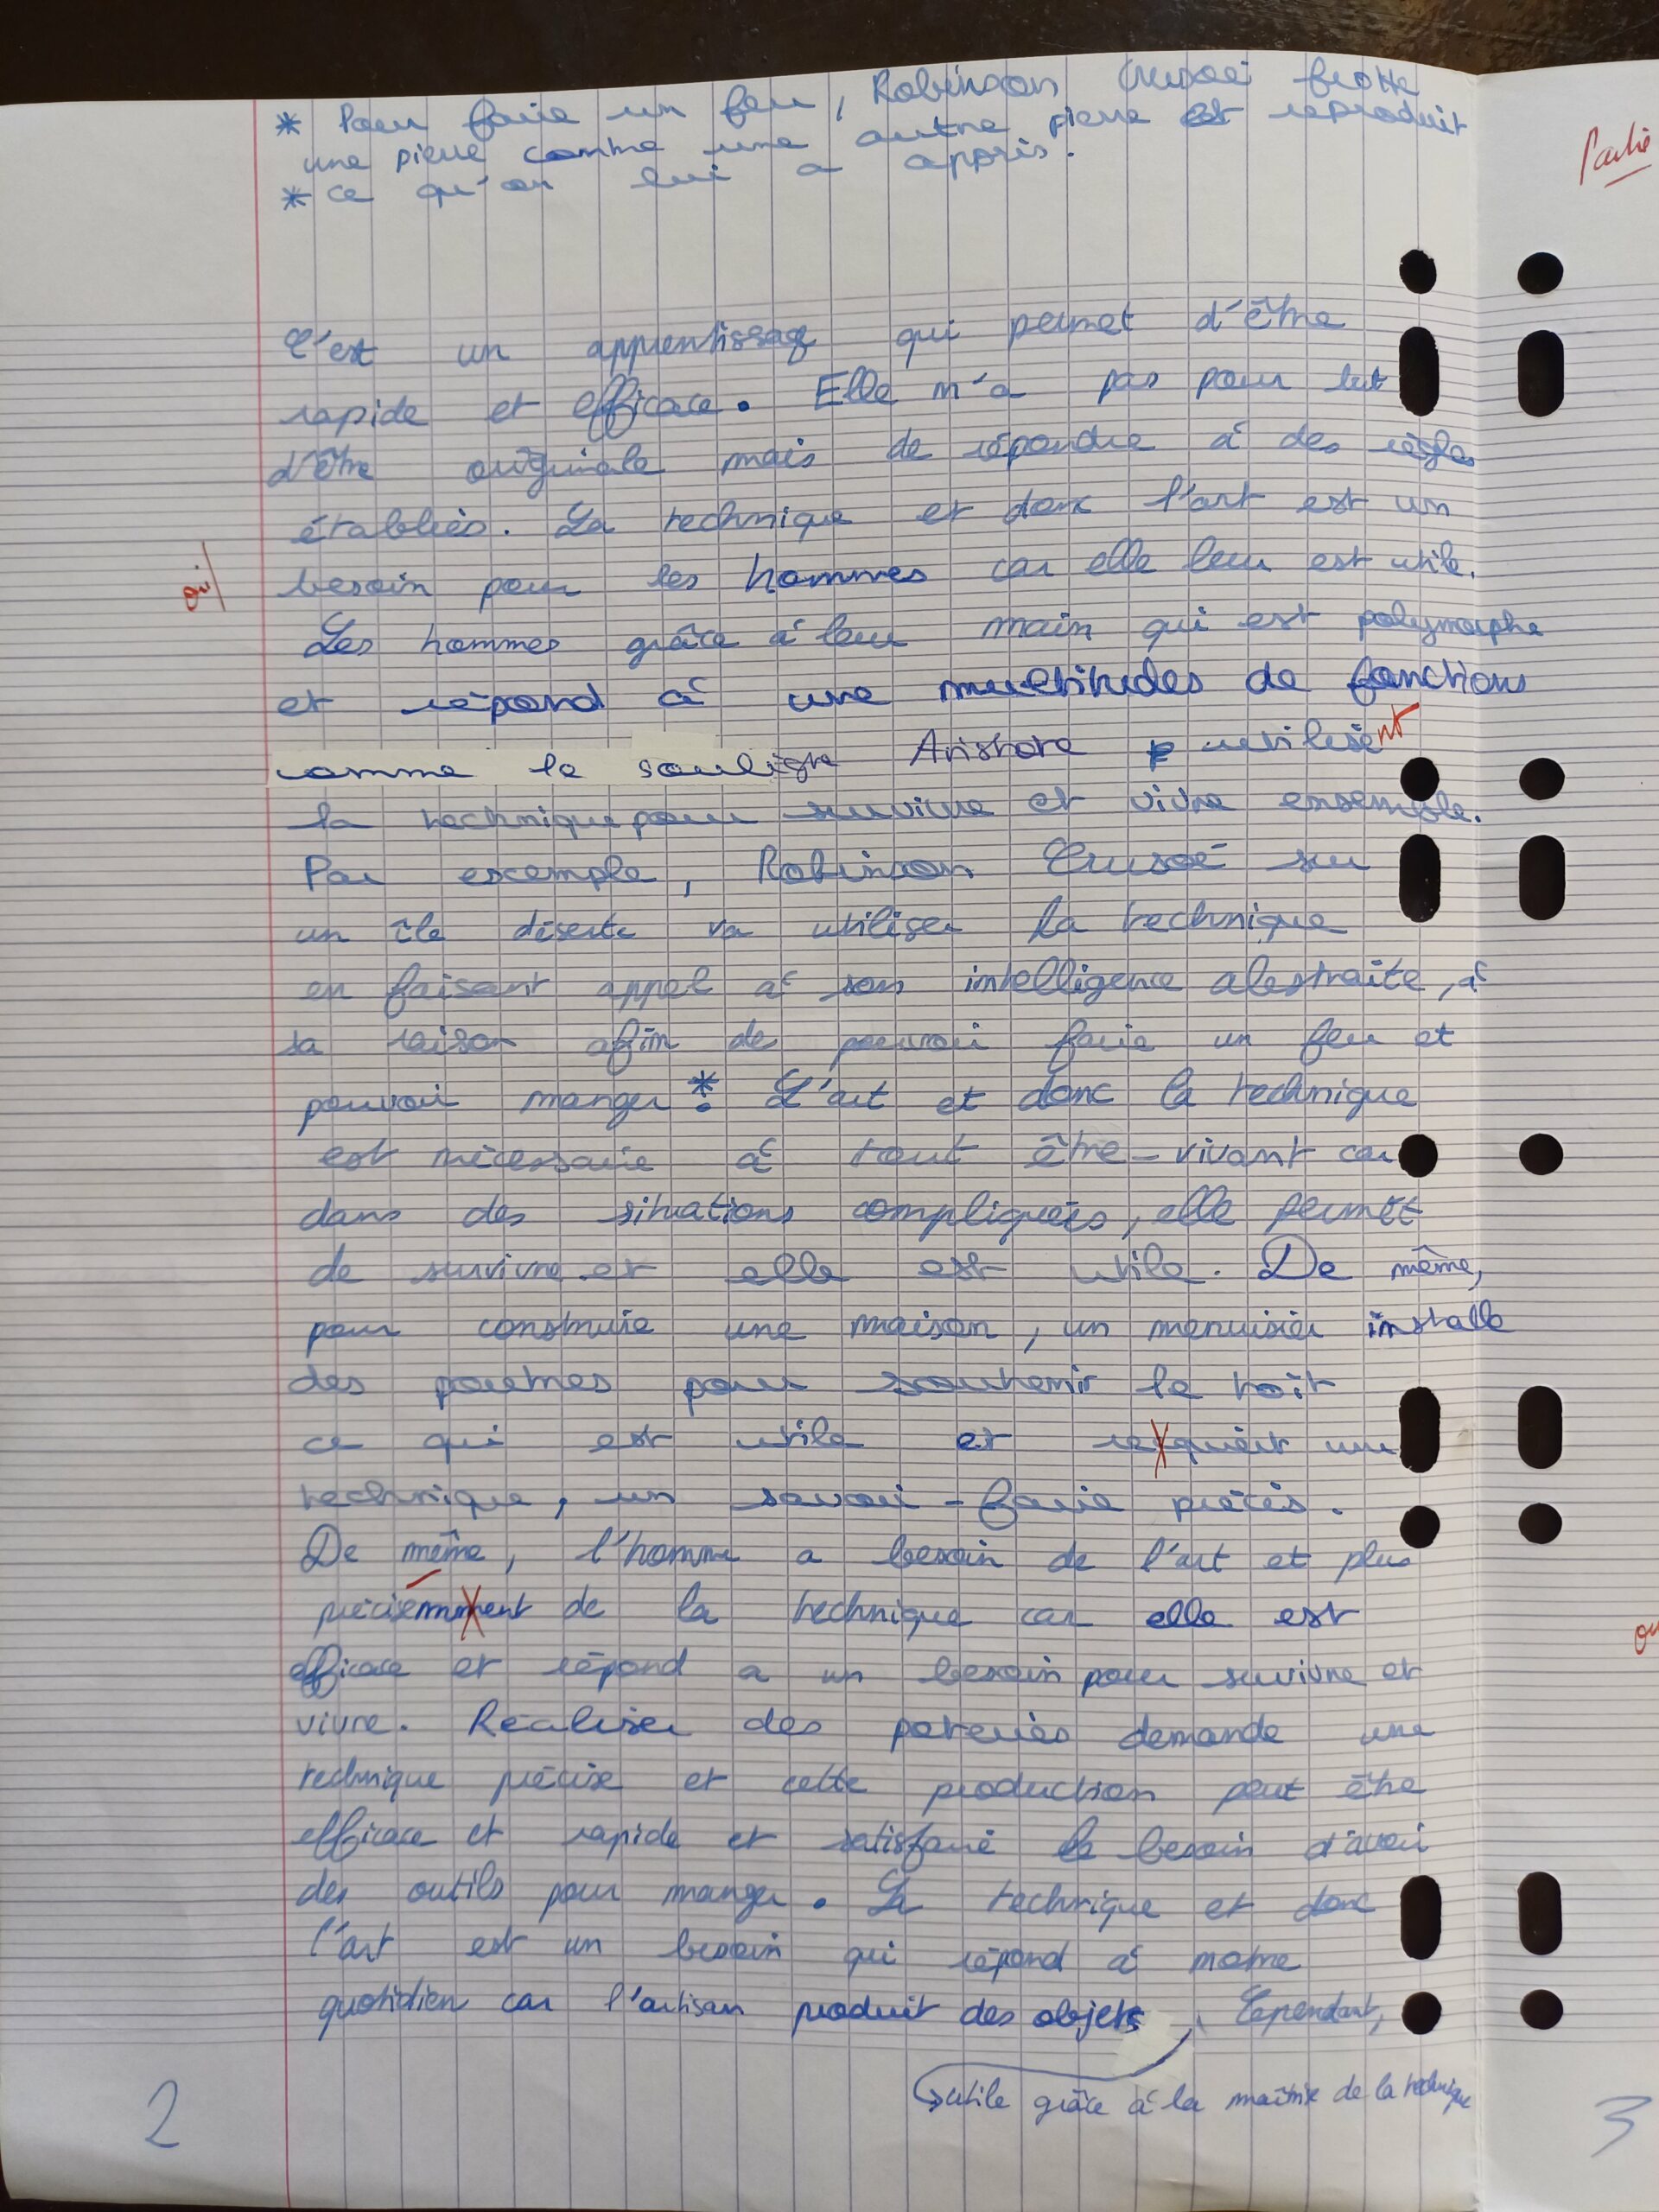 * Pour faire un feu, Robinson Crusoé frotte
une pierre comme une autre pierre et reproduit
* ce qu'on lui a appris.
Partie
C'est un apprentissage qui permet d'être
rapide et efficace. Elle n'a pas pour but
d'être originale mais de répondre à des règles
établies. La technique et donc l'art est un
oui
besoin pour les hommes car elle leur est utile.
Les hommes grâce à leur main qui est polymorphe
et répond à une multitudes de fonctions
comme le souligne Aristote utilisent
la technique pour survivre et vivre ensemble.
Par exemple, Robinson Crusoé sur
un île déserte va utiliser la technique
en faisant appel à son intelligence abstraite, à
sa raison afin de pouvoir faire un feu et
pouvoir manger*. L'art et donc la technique
est nécessaire à tout être-vivant car
dans des situations compliquées, elle permet
de survivre et elle est utile. De même,
pour construire une maison, un menuisier installe
des poutres pour soutenir le toît
ce qui est utile et requiert une
technique, un savoir-faire précis.
De même, l'homme a besoin de l'art et plus
précisemment de la technique car elle est
efficace et répond a un besoin pour survivre et
vivre. Réaliser des poteries demande une
technique précise et cette production peut être
efficace et rapide et satisfaire le besoin d'avoir
des outils pour manger. La technique et donc
l'art est un besoin qui répond à notre
quotidien car l'artisan produit des objets. Cependant,
utile grâce à la maîtrise de la technique
2
3